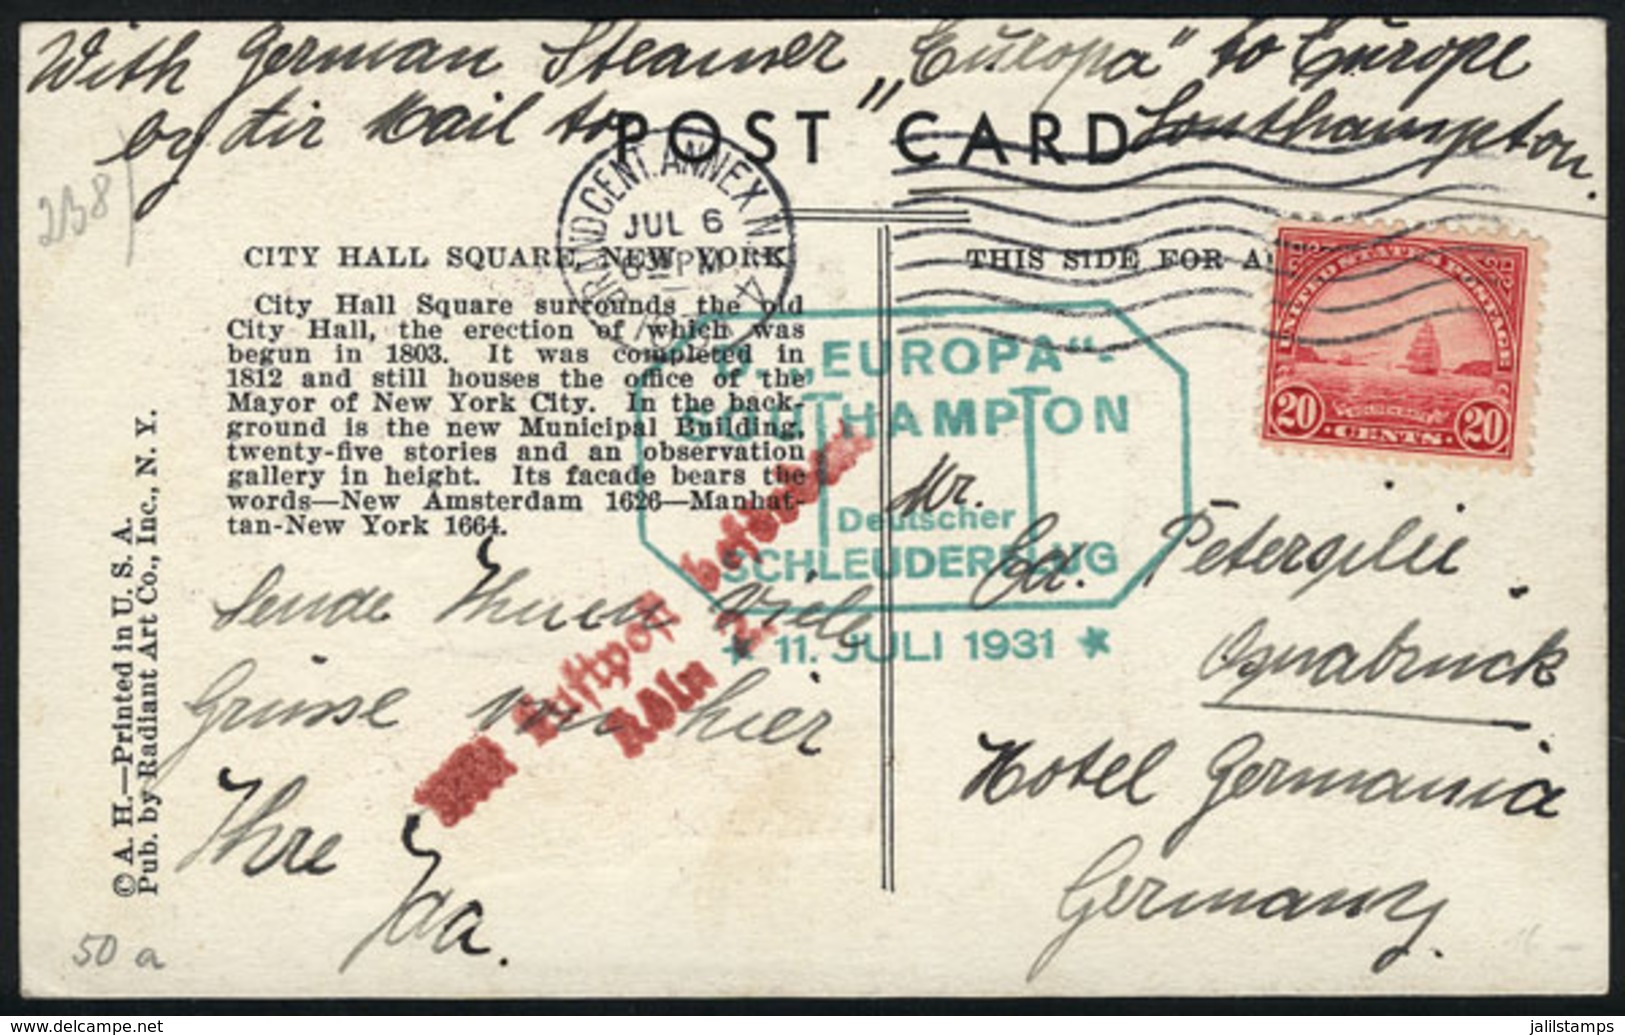 With German Steamer „Europa" to Europe
by Air Mail to Southampton.
POST CARD
238
GRAND CENT. ANNEX N.Y.
JUL 6
PM
4
CITY HALL SQUARE, NEW YORK
THIS SIDE FOR A
City Hall Square surrounds the old
City Hall, the erection of which was
begun in 1803. It was completed in
1812 and still houses the office of the
Mayor of New York City. In the back-
ground is the new Municipal Building,
twenty-five stories and an observation
gallery in height. Its facade bears the
words—New Amsterdam 1626—Manhat-
tan-New York 1664.
© A. H.—Printed in U. S. A.
Pub. by Radiant Art Co., Inc., N. Y.
UNITED STATES POSTAGE
20 CENTS 20
D. „EUROPA"-
SOUTHAMPTON
Deutscher
SCHLEUDERFLUG
* 11. JULI 1931 *
Luftpost befördert
Köln 2.
Sende Ihnen Viele
Grüsse von hier
Ihre
Mr.
Ed. Petersilie
Osnabruck
Hotel Germania
Germany.
50 a
jalilstamps
www.delcampe.net